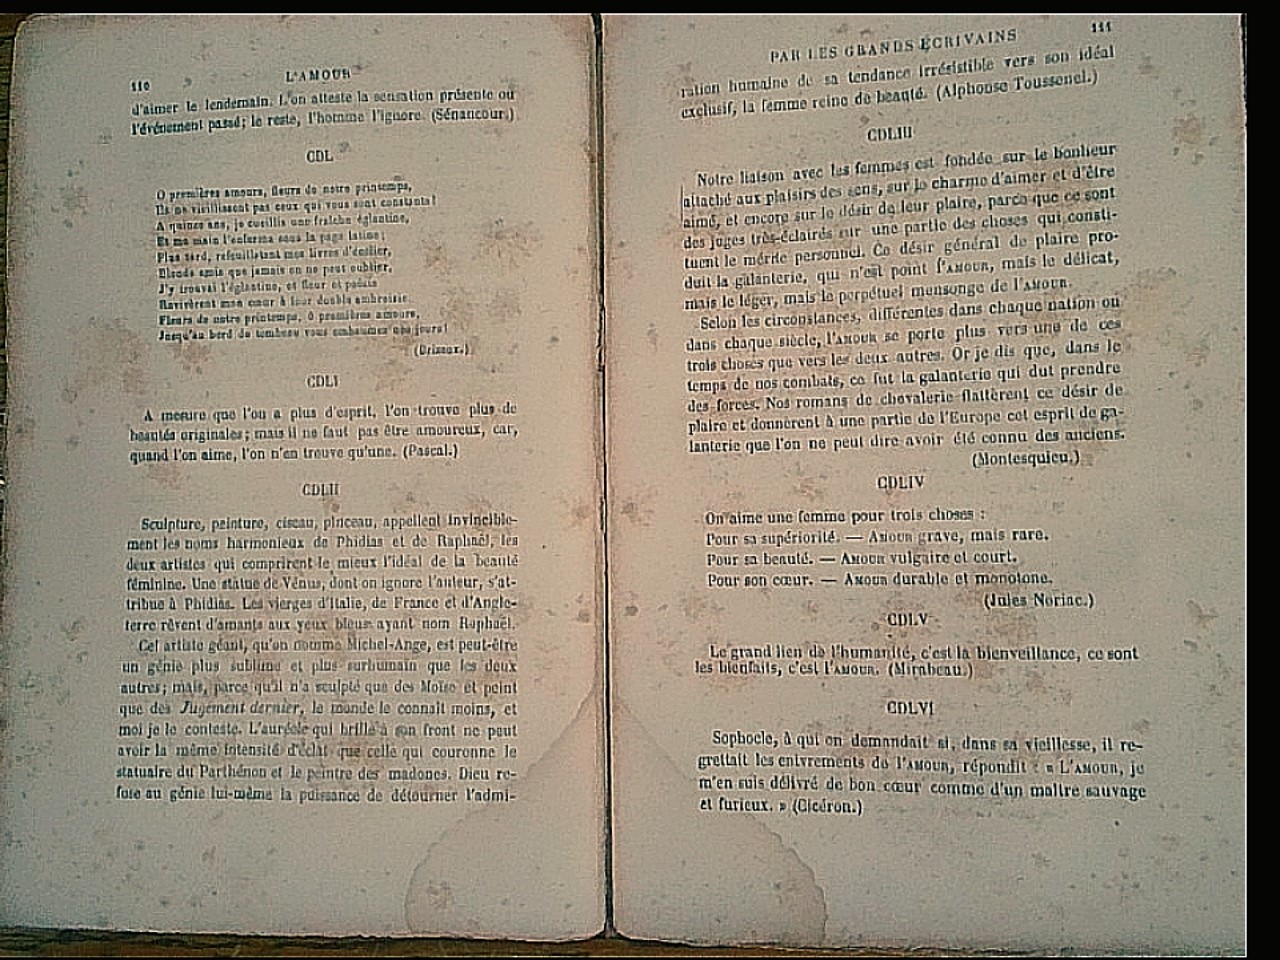 110
L'AMOUR
d'aimer le lendemain. L'on atteste la sensation présente ou
l'événement passé; le reste, l'homme l'ignore. (Sénancour.)
CDL
O premières amours, fleurs de notre printemps,
Ils ne vieillissent pas ceux qui vous sont constants!
A quinze ans, je cueillis une fraîche églantine,
Et ma main l'enferma sous la page latine;
Plus tard, refeuilletant mes livres d'écolier,
Bleuds amis que jamais on ne peut oublier,
J'y trouvai l'églantine, et fleur et poésie
Ravivèrent mon cœur à leur double ambroisie.
Fleurs de notre printemps, ô premières amours,
Jusqu'au bord du tombeau vous embaumez nos jours!
(Brizeux.)
CDLI
A mesure que l'on a plus d'esprit, l'on trouve plus de
beautés originales; mais il ne faut pas être amoureux, car,
quand l'on aime, l'on n'en trouve qu'une. (Pascal.)
CDLII
Sculpture, peinture, ciseau, pinceau, appellent invincible-
ment les noms harmonieux de Phidias et de Raphaël, les
deux artistes qui comprirent le mieux l'idéal de la beauté
féminine. Une statue de Vénus, dont on ignore l'auteur, s'at-
tribue à Phidias. Les vierges d'Italie, de France et d'Angle-
terre rêvent d'amants aux yeux bleus ayant nom Raphaël.
Cet artiste géant, qu'on nomme Michel-Ange, est peut-être
un génie plus sublime et plus surhumain que les deux
autres; mais, parce qu'il n'a sculpté que des Moïse et peint
que des Jugement dernier, le monde le connaît moins, et
moi je le conteste. L'auréole qui brille à son front ne peut
avoir la même intensité d'éclat que celle qui couronne le
statuaire du Parthénon et le peintre des madones. Dieu re-
fuse au génie lui-même la puissance de détourner l'admi-
PAR LES GRANDS ÉCRIVAINS
111
ration humaine de sa tendance irrésistible vers son idéal
exclusif, la femme reine de beauté. (Alphonse Toussenel.)
CDLIII
Notre liaison avec les femmes est fondée sur le bonheur
attaché aux plaisirs des sens, sur le charme d'aimer et d'être
aimé, et encore sur le désir de leur plaire, parce que ce sont
des juges très-éclairés sur une partie des choses qui consti-
tuent le mérite personnel. Ce désir général de plaire pro-
duit la galanterie, qui n'est point l'AMOUR, mais le délicat,
mais le léger, mais le perpétuel mensonge de l'AMOUR.
Selon les circonstances, différentes dans chaque nation ou
dans chaque siècle, l'AMOUR se porte plus vers une de ces
trois choses que vers les deux autres. Or je dis que, dans le
temps de nos combats, ce fut la galanterie qui dut prendre
des forces. Nos romans de chevalerie flattèrent ce désir de
plaire et donnèrent à une partie de l'Europe cet esprit de ga-
lanterie que l'on ne peut dire avoir été connu des anciens.
(Montesquieu.)
CDLIV
On aime une femme pour trois choses :
Pour sa supériorité. — AMOUR grave, mais rare.
Pour sa beauté. — AMOUR vulgaire et court.
Pour son cœur. — AMOUR durable et monotone.
(Jules Noriac.)
CDLV
Le grand lien de l'humanité, c'est la bienveillance, ce sont
les bienfaits, c'est l'AMOUR. (Mirabeau.)
CDLVI
Sophocle, à qui on demandait si, dans sa vieillesse, il re-
grettait les enivrements de l'AMOUR, répondit : « L'AMOUR, je
m'en suis délivré de bon cœur comme d'un maître sauvage
et furieux. » (Cicéron.)